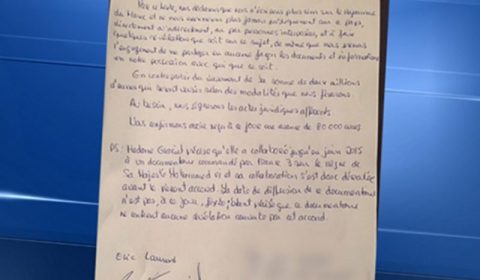 Par ce texte, nous déclarons que nous n'écrirons plus rien sur le royaume
du Maroc et ne nous exprimerons plus jamais en aucun support sur ce pays,
directement ou indirectement, ou par personnes interposées, et à faire
quelques révélations que soit sur ce sujet, de même que nous prenons
l'engagement de ne partager en aucune façon les documents et informations
en notre possession avec qui que ce soit.
En contrepartie du versement de la somme de deux millions
d'euros qui seront versés selon des modalités que nous fixerons.
Au besoin, nous signerons les actes juridiques afférents
Nous confirmons avoir reçu à ce jour une avance de 80 000 euros
PS: Madame Graciet précise qu'elle a collaboré jusqu'au juin 2015
à un documentaire commandé par France 3 sur le règne de
Sa Majesté Mohammed VI et sa collaboration s'est donc déroulée
avant le présent accord. La date de diffusion de ce documentaire
n'est pas, à ce jour, fixée; étant précisé que ce documentaire
ne contient aucune révélation couverte par cet accord.
Eric Laurent